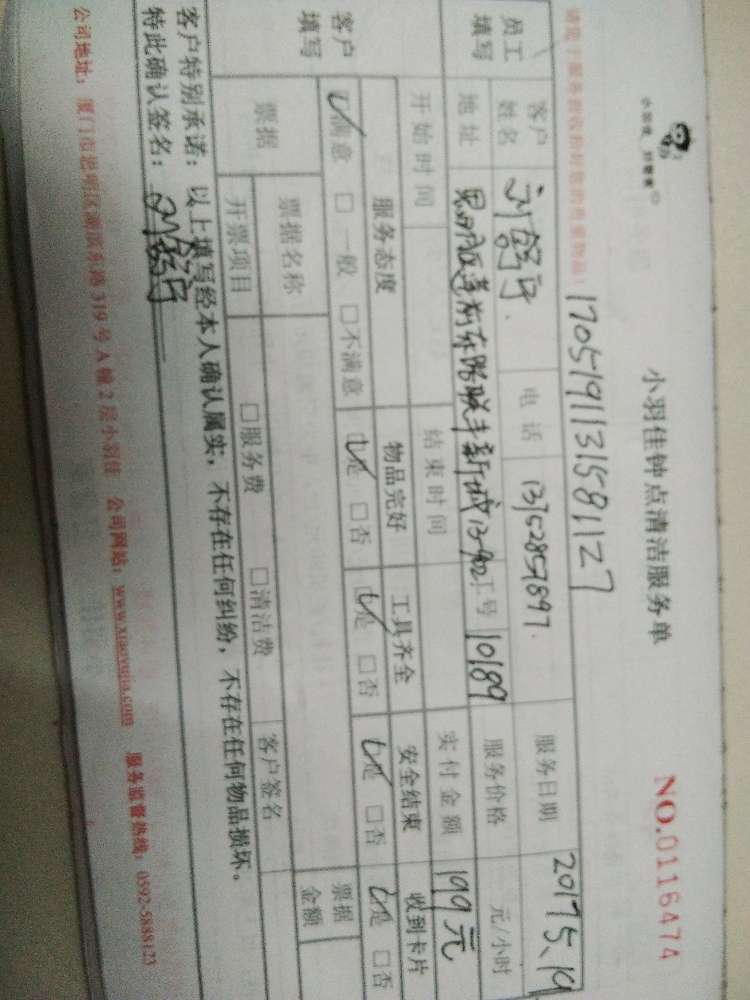 小羽佳钟点清洁服务单
NO.0116474
170519113158112７
员工填写
客户姓名 刘舒宁 电话 13752857897 服务日期 2017 5、19
地址 思明区莲前东路联丰新城13-902 工号 10189 服务价格 元/小时
开始时间 结束时间 实付金额 199元
客户填写
服务态度 物品完好 工具齐全 安全结束 收到卡片
☑满意 □一般 □不满意 ☑是 □否 ☑是 □否 ☑是 □否 ☑是 □否
票据 票据名称 票据金额
开票项目 □服务费 □清洁费 客户签名
客户特别承诺：以上填写经本人确认属实，不存在任何纠纷，不存在任何物品损坏。
特此确认签名：刘舒宁
公司地址：厦门市思明区 319号A幢2层小羽佳 公司网站：www.xiaoyujia.com 服务监督热线：0592-5888123